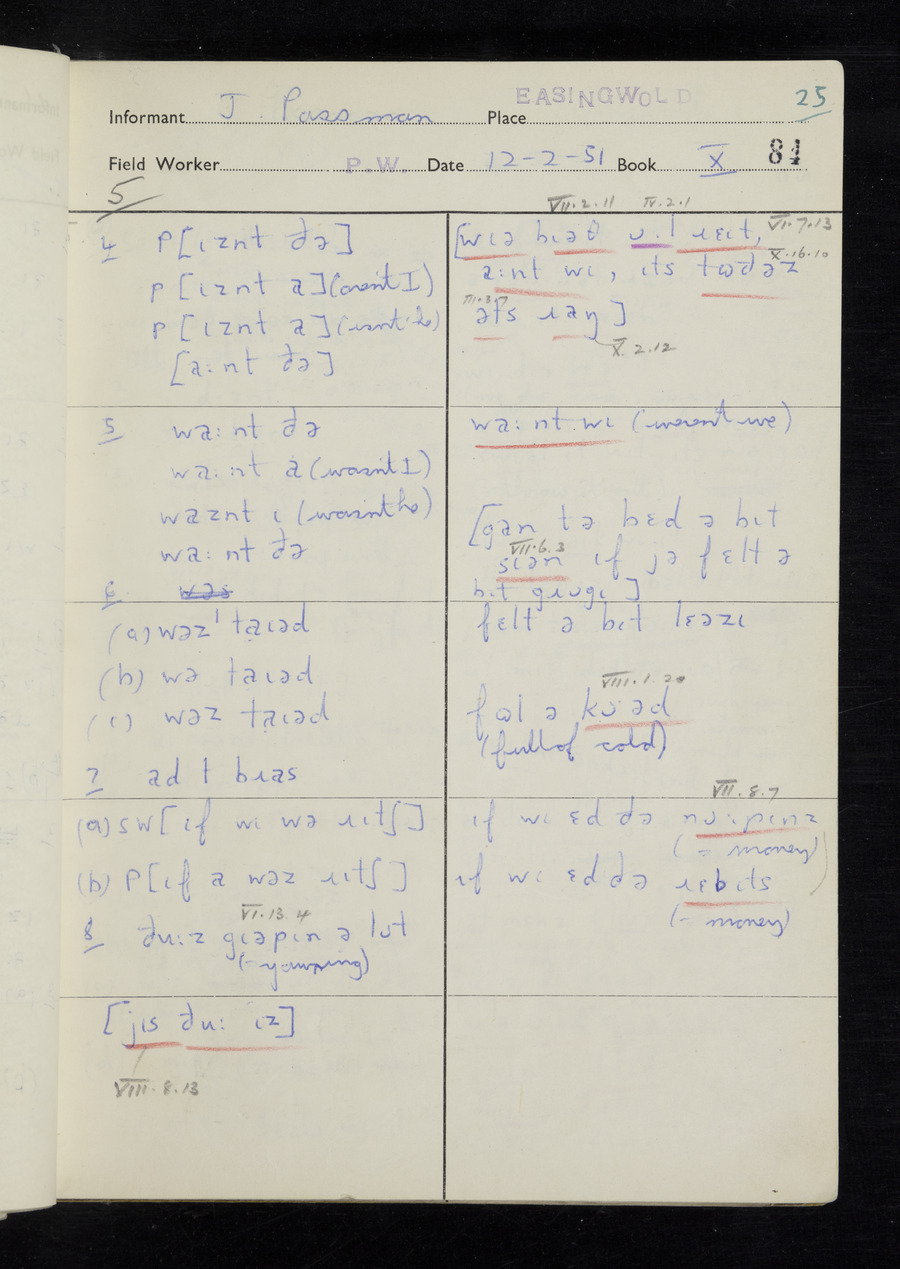 EASINGWOLD 25
Informant J. Passman Place
Field Worker P.W. Date 12-2-51 Book X 84
5
4 P[ɪznt ðə]
P[ɪznt a] (arent I)
P[ɪznt a] (isnt he)
[a:nt ðə]
5 wa:nt ðə
wa:nt a (wasnt I)
waznt ɪ (wasnt he)
wa:nt ðə
6 wəs
(a) wəz' taɪəd
(b) wə taɪəd
(c) wəz taɪəd
7 ad t bɪas
(a) SW[if wɪ wə ɹɪtʃ]
(b) P[ɪf a wəz ɹɪtʃ]
VI.13.4
8 ðu:z gɪəpɪn ə lɒt
(=yawning)
[jɪs ðu: ɪz]
VIII.8.13
VII.2.11 IV.2.1
[wɪə bɪəθ ɒ:l ɹɛɪt, VI.7.13
X.16.10
a:nt wɪ, ɪts tɷdəz
III.3.7
əts ɹaŋ]
X.2.12
wa:nt wɪ (werent we)
[gan tə bɛd ə bɪt
VII.6.3
sɪən ɪf jə fɛlt ə
bɪt
fɛlt ə bɪt lɛəzɪ
VIII.1.20
fɷl ə kʊəd
(full of cold)
VII.8.7
ɪf wɪ ɛd ðə
(= money)
ɪf wɪ ɛd ðə ɹɛbɪts
(= money)